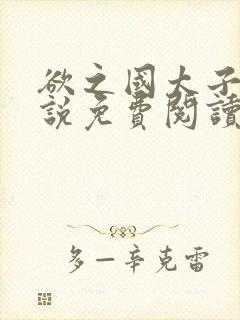 欲之國大子
說免費閱讀
多一辛克雷